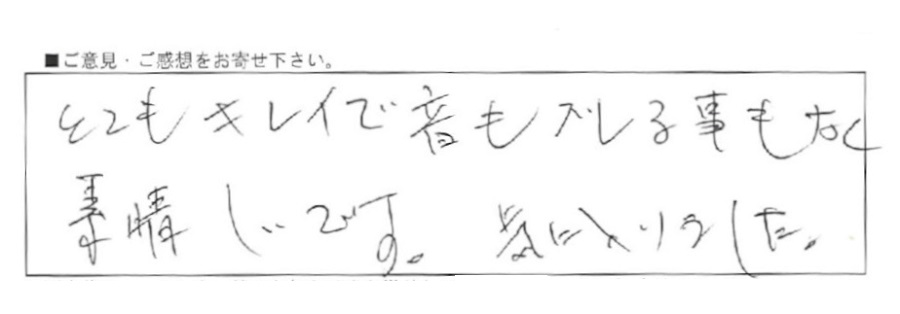 ■ご意見・ご感想をお寄せ下さい。
とてもキレイで音もズレる事もなく
素晴しいです。気に入りました。